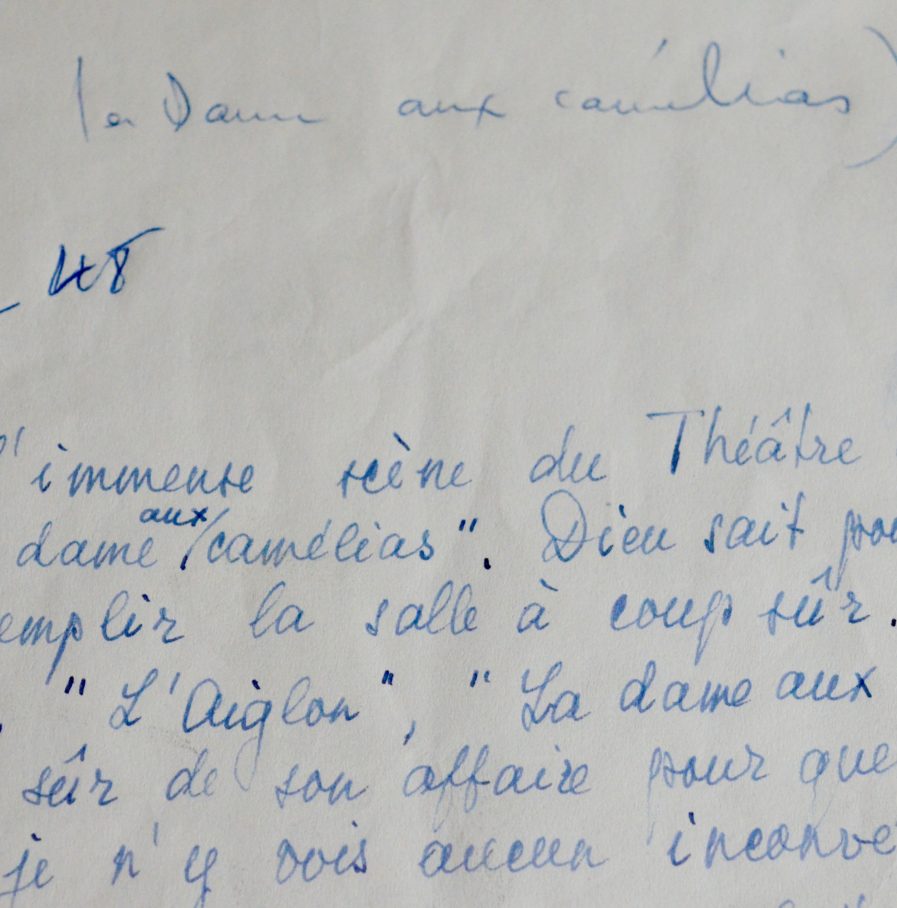 la Dame aux camélias)
48
l'immense scène du Théâtre
dame aux camélias". Dieu sait
emplir la salle à coup sûr.
"L'Aiglon", "La dame aux
sûr de son affaire pour que
je n'y vois aucun inconvé